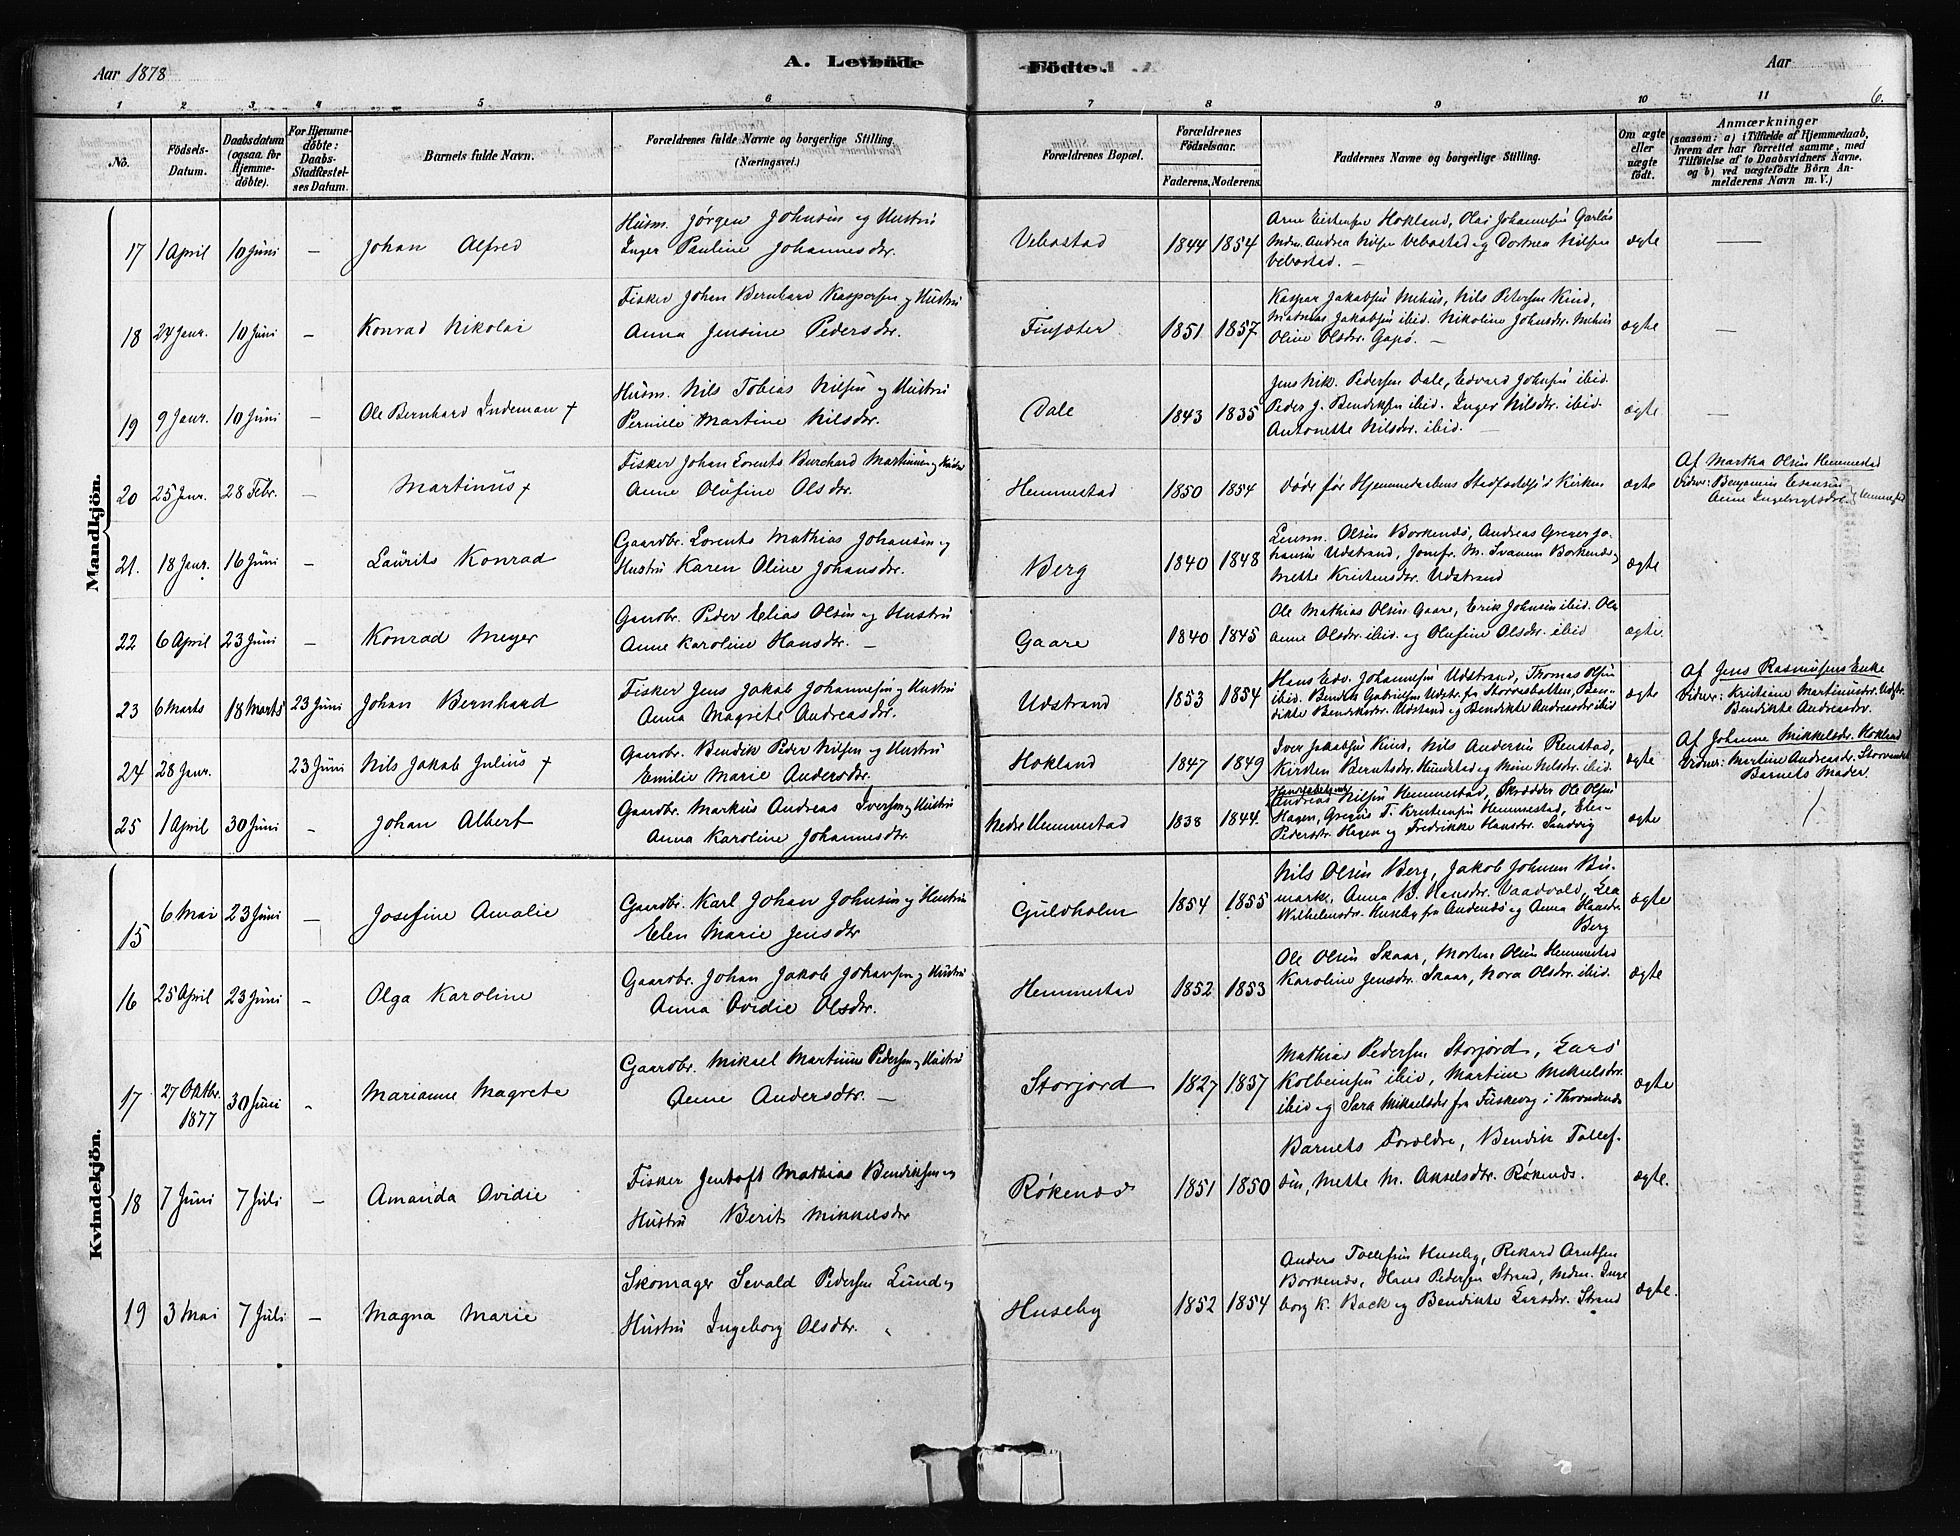 Aar 1878
A. Levende
Födte.
Aar
6.
1 2 3 4 5 6 7 8 9 10 11
No.
Födsels-
Datum.
Daabsdatum
(ogsaa for
Hjemme-
döbte).
For Hjemme-
döbte:
Daabs-
Stadfæstel-
ses Datum.
Barnets fulde Navn.
Forældrenes fulde Navne og borgerlige Stilling
(Næringsvei.)
Forældrenes Bopæl.
Forældrenes
Födselsaar.
Faderens. Moderens.
Faddernes Navne og borgerlige Stilling.
Om ægte
eller
uægte
födt.
Anmærkninger
(saasom: a) i Tilfælde af Hjemmedaab,
hvem der har forrettet samme, med
Tilföielse af to Daabsvidners Navne,
og b) ved uægtefödte Börn An-
melderens Navn m. V.)
Mandkjön.
17 1 April 10 Juni — Johan Alfred
Husm. Jørgen Johnsen og Hustru
Inger Pauline Johannesdtr.
Vebostad 1844 1854
Arne Eistensen Hokland, Olai Johannesen
Mdm. Andrea Nilsen Vebostad og Dorthea Nilsen
Vebostad. —
ægte —
18 24 Janr. 10 Juni — Konrad Nikolai
Fisker Johan Bernhard Kaspersen og Hustru
Anna Jensine Pedersdtr.
Finsæter 1851 1857
Kaspar Jakobsen Mehus, Nils Petersen Kind,
Mathias Jakobsen ibid. Nikoline Johnsdtr. Mehus
Oline Olsdtr. Gapø. —
ægte —
19 9 Janr. 10 Juni — Ole Bernhard Indeman +
Husm. Nils Tobias Nilsen og Hustru
Pernille Martine Nilsdtr.
Dale 1843 1835
Jens Nik. Pedersen Dale, Edvard Johnsen ibid.
Peder J. Bendiksen ibid. Inger Nilsdtr. ibid.
Antonette Nilsdtr. ibid. —
ægte —
20 25 Janr. 28 Febr. — Martinus +
Fisker Johan Lorents Burchard Martinusen og Hustru
Anne Olufine Olsdtr.
Hemmestad 1850 1854
Døde før Hjemmedaabens Stadfæstelse i Kirken
ægte
Af Martha Olsen Hemmestad
Vidner: Benjamin Esaisen
Anne Ingebrigtsdtr. Hemmestad
21. 18 Janr. 16 Juni — Laurits Konrad
Gaardbr. Lorents Mathias Johansen og
Hustru Karen Oline Johansdtr.
Berg 1840 1848
Lensm. Olsen Borkenæs, Andreas Greger Jo-
hansen Udstrand, Jomfr. M. Svanem Borkenæs og
Mette Kristensdtr. Udstrand
ægte
22 6 April 23 Juni — Konrad Meyer
Gaardbr. Peder Elias Olsen og Hustru
Anne Karoline Hansdtr. —
Gaare 1840 1845
Ole Mathias Olsen Gaare, Erik Johnsen ibid. Ole
Anne Olsdtr. ibid. og Olufine Olsdtr. ibid
ægte.
23 6 Marts 18 Marts 23 Juni Johan Bernhard
Fisker Jens Jakob Johannesen og Hustru
Anna Magrete Andreasdtr.
Udstrand 1853 1854
Hans Edv. Johannesen Udstrand, Thomas Olsen
ibid. Bendik Gabrielsen Udstr. fra Storvasbotten, Ben-
dikte Bendiksdtr. Udstrand og Bendikte Andreasdtr ibid
ægte
Af Jens Rasmusens Enke
Vidner: Kristine Martinusdtr. Udstr.
Bendikte Andreasdtr.
24 28 Janr. 23 Juni Nils Jakob Julius +
Gaardbr. Bendik Peder Nilsen og Hustru
Emilie Marie Andersdtr.
Hokland 1847 1849
Iver Jakobsen Kind, Nils Andersen Renstad,
Kirsten Berntsdtr. Hundstad og Mine Nilsdtr. ibid.
ægte
Af Johanne Mikkelsdtr. Hokland
Vidner: Martine Andreasdtr.
Barnets Moder.
25 1 April 30 Juni — Johan Albert
Gaardbr. Markus Andreas Iversen og Hustru
Anna Karoline Johannesdtr
Nedre Hemmestad 1838 1844.
Andreas Nilsen Hemmestad, Skrædder Ole Olsen
Hagen, Gregus T. Kristensen Hemmestad, Elen
Pedersdtr. Hagen og Fredrikke Hansdtr. Sandvig
ægte
Kvindekjön.
15 6 Mai 23 Juni — Josefine Amalie
Gaardbr. Karl Johan Johnsen og Hustru
Elen Marie Jensdtr
Guldholm 1854 1855
Nils Olsen Berg, Jakob Johnsen Bu-
mark, Anna B. Hansdtr. Vaadvold, Lea
Wilhelmsdtr. Huseby fra Andenæs og Anna Hansdtr
Berg
ægte
16 25 April 23 Juni — Olga Karoline
Gaardbr. Johan Jakob Johansen og Hustru
Anna Ovidie Olsdtr.
Hemmestad 1852 1853
Ole Olsen Skaar, Morten Olsen Hemmestad
Karoline Jensdtr. Skaar, Nora Olsdtr. ibid.
ægte
17 27 Oktbr. 1877 30 Juni — Marianne Magrete
Gaardbr. Mikael Martinus Pedersen og Hustru
Anne Andersdtr. —
Storjord 1827 1837
Mathias Pedersen Storjord, Lars
Kolbeinsen ibid, Martine Mikelsdtr.
ibid og Sara Mikaelsdtr fra Fuskevog i Throndenæs
ægte
18 7 Juni 7 Juli — Amanda Ovidie
Fisker Jentoft Mathias Bendiksen og
Hustru Berit Mikkelsdtr
Røkenæs 1851 1850
Barnets Forældre, Bendik Tollef-
sen, Mette M. Akselsdtr. Røkenæs.
ægte.
19 3 Mai 7 Juli — Magna Marie
Skomager Sevald Pedersen Lund og
Hustru Ingeborg Olsdtr.
Huseby 1852 1854
Anders Tollefsen Huseby, Rikard Arntsen
Borkenæs, Hans Pedersen Strand, Mdm. Inge
borg K. Back og Bendikte Larsdtr. Strand
ægte.